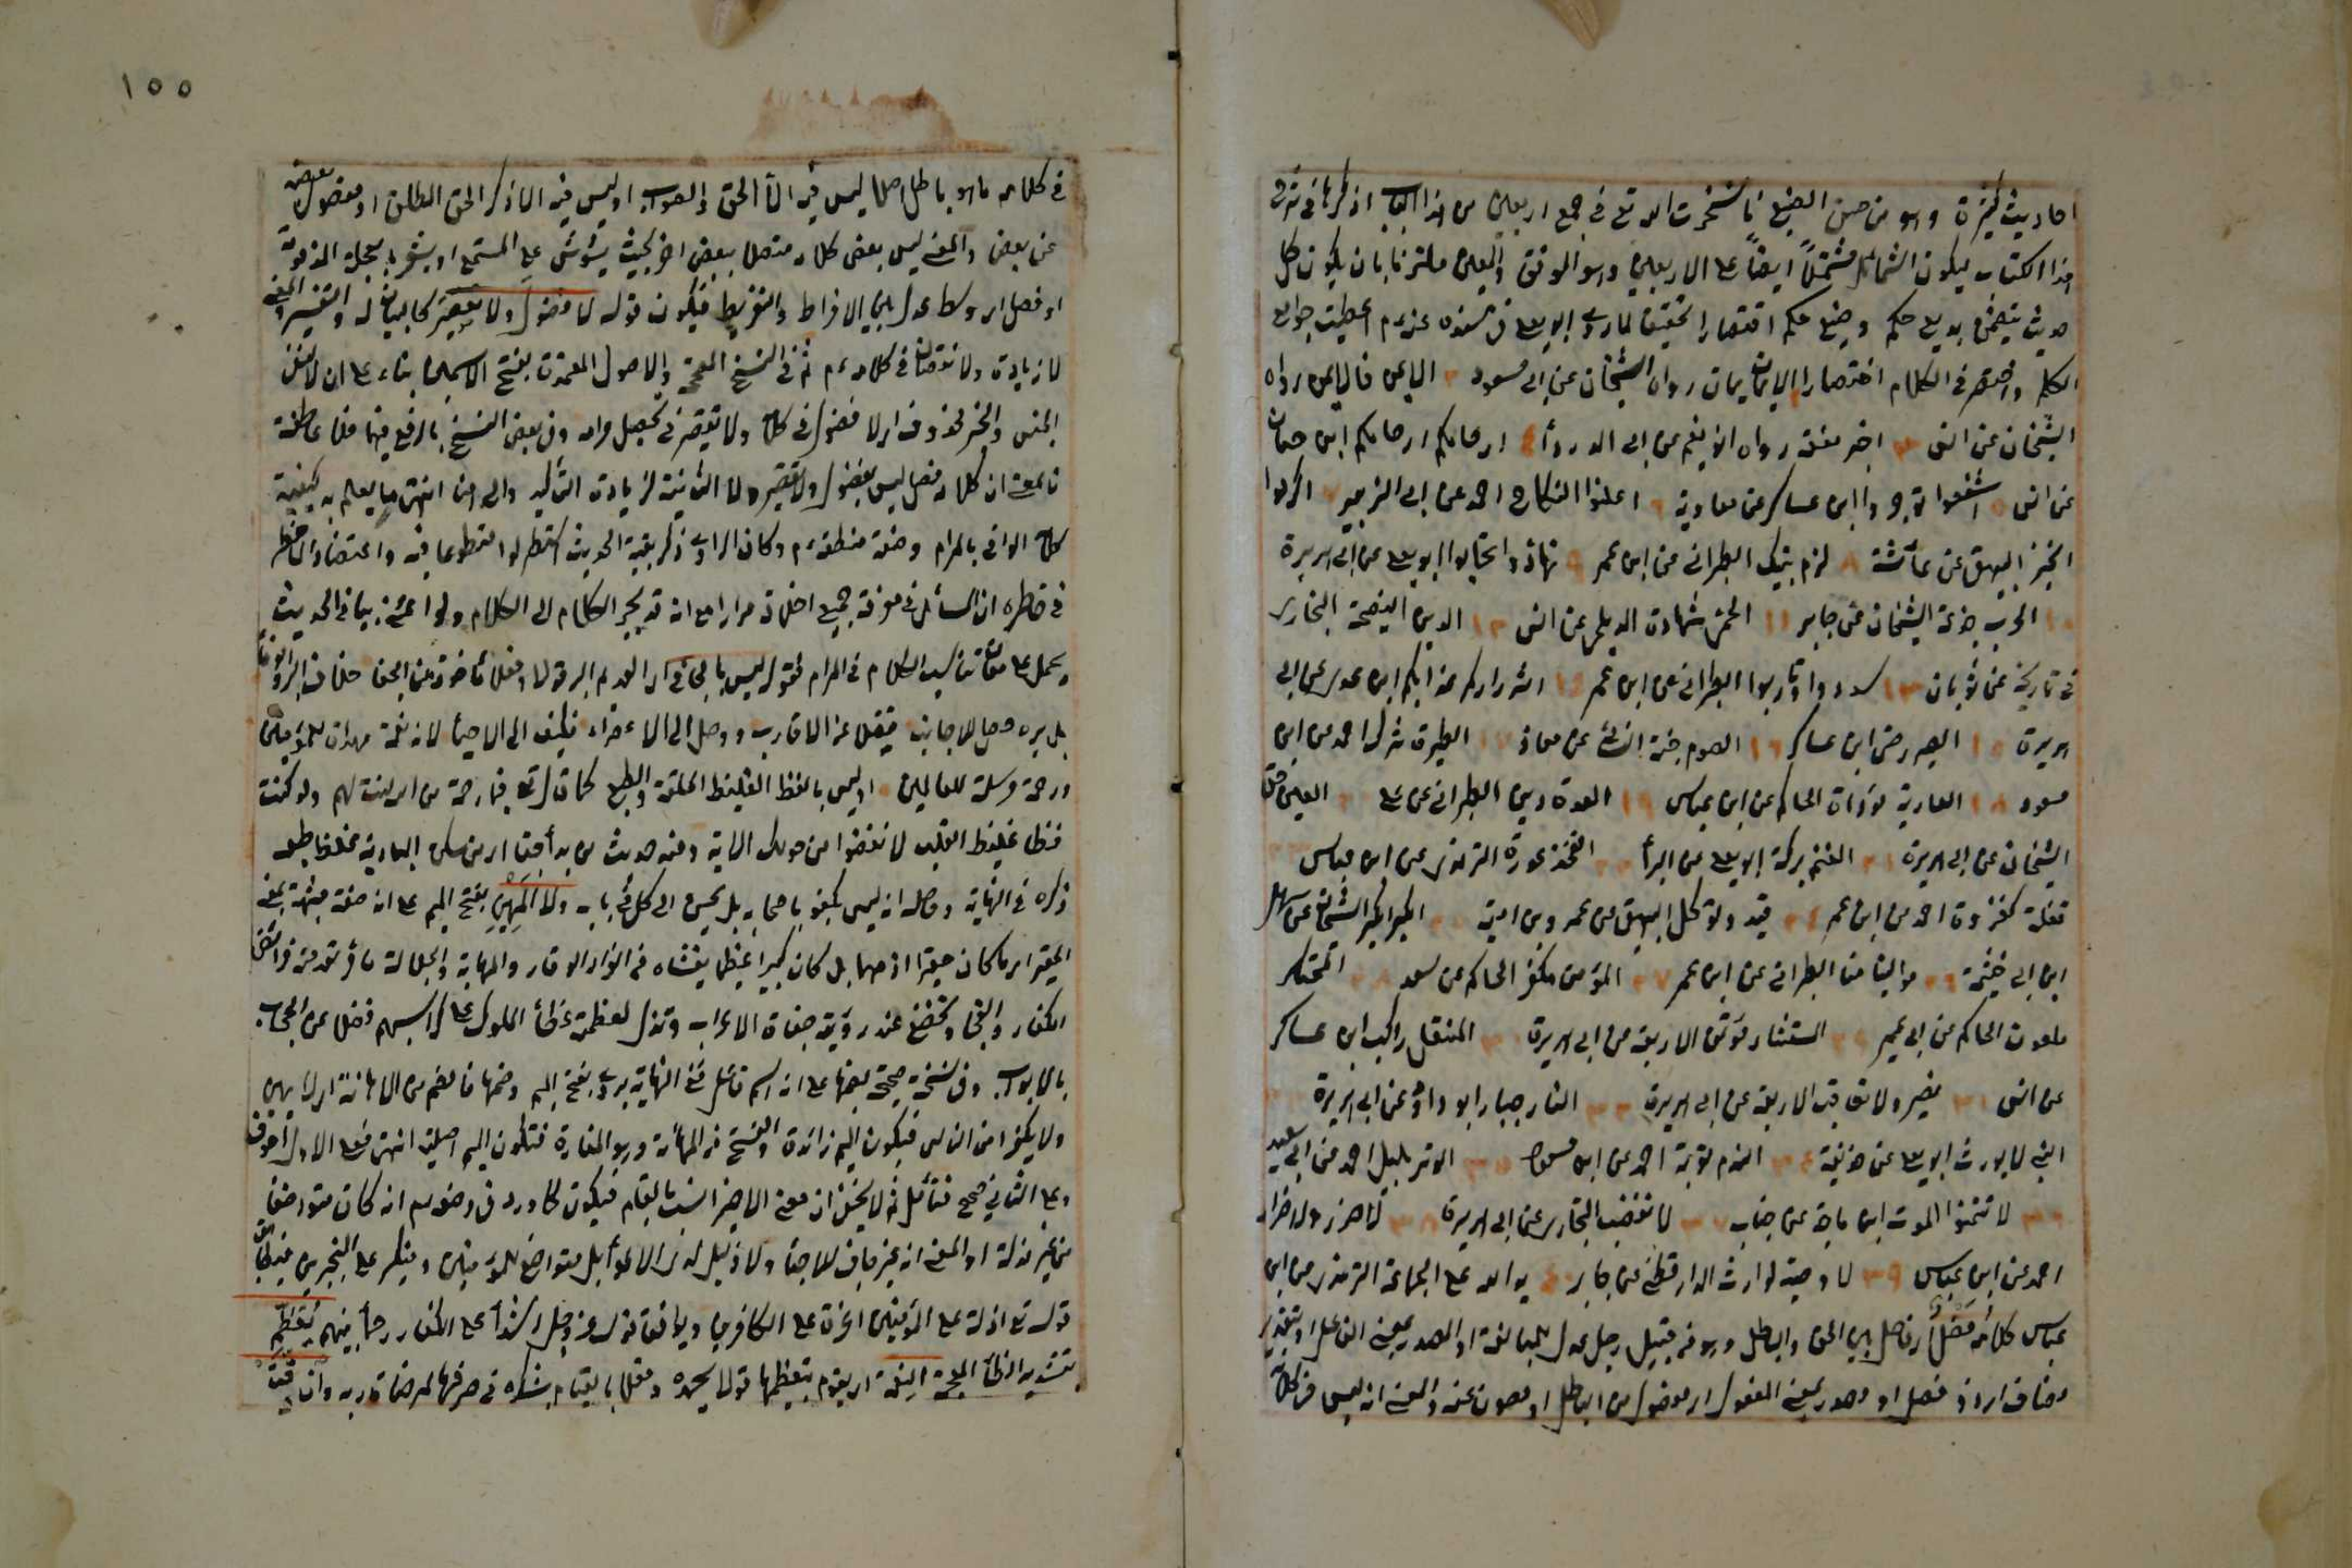 احاديث كثيرة وهو من حسن الصنيع فاستخرت الله تع في جمع اربعين من هذا الباب اذكرها في شرح
هذا الكتاب ليكون الشمائل مشتملاً ايضاً على الاربعين وهو الموفق والمعين ملتزما بان يكون كل
حديث يتضمن بديع حكم وصنيع حكم اقتصارا تحقيقا لما روى ابو يعلى في مسنده عنه عم اعطيت جوامع
الكلم واختصر لي الكلام اختصارا الايمان يمان رواه الشيخان عن ابي مسعود ٢ الايمن فالايمن رواه
الشيخان عن انس ٣ اخبر تقله رواه ابو نعيم عن ابي الدرداء ٤ ارحامكم ارحامكم ابن حبان
عن انس ٥ اشفعوا تؤجروا ابن عساكر عن معاوية ٦ اعلنوا النكاح احمد عن ابن الزبير ٧ اكرموا
الخبز البيهقي عن عائشة ٨ الزم بيتك الطبراني عن ابن عمر ٩ تهادوا تحابوا ابو يعلى عن ابي هريرة
١٠ الحرب خدعة الشيخان عن جابر ١١ الحمى شهادة الديلمي عن انس ١٢ الدين النصيحة البخاري
في تاريخه عن ثوبان ١٣ سددوا وقاربوا الطبراني عن ابن عمر ١٤ شراركم عزابكم ابن عدي عن ابي
هريرة ١٥ الصبر رضى ابن عساكر ١٦ الصوم جنة النسائي عن معاذ ١٧ الطيرة شرك احمد عن ابن
مسعود ١٨ العارية مؤداة الحاكم عن ابن عباس ١٩ العدة دين الطبراني عن علي ٢٠ العين حق
الشيخان عن ابي هريرة ٢١ الغنم بركة ابو يعلى عن البراء ٢٢ الفخذ عورة الترمذي عن ابن عباس ٢٣
قفلة كغزوة احمد عن ابن عمر ٢٤ قيد وتوكل البيهقي عن عمرو بن امية ٢٥ الكبر الكبر الشيخان عن سهل
ابن ابي خيثمة ٢٦ موالينا منا الطبراني عن ابن عمر ٢٧ المؤمن مكفر الحاكم عن سعد ٢٨ المحتكر
ملعون الحاكم عن ابن عمر ٢٩ المستشار مؤتمن الاربعة عن ابي هريرة ٣٠ المنتعل راكب ابن عساكر
عن انس ٣١ نصبر ولا نعاقب الاربعة عن ابي هريرة ٣٢ النار جبار ابو داود عن ابي هريرة ٣٣
النبي لا يورث ابو يعلى عن حذيفة ٣٤ الندم توبة احمد عن ابن مسعود ٣٥ الوتر بليل احمد عن ابي سعيد
٣٦ لا تتمنوا الموت ابن ماجة عن خباب ٣٧ لا تغضب البخاري عن ابي هريرة ٣٨ لا ضرر ولا ضرار
احمد عن ابن عباس ٣٩ لا وصية لوارث الدارقطني عن جابر ٤٠ يد الله على الجماعة الترمذي عن ابن
عباس كلامه فصل اي فاصل بين الحق والباطل وهو من قبيل رجل عدل للمبالغة او المصدر بمعنى الفاعل او بتقدير
مضاف اي ذو فصل او مصدر بمعنى المفعول اي مفصول من الباطل او مصون عنه والمعنى انه ليس في كلامه
١٥٥
في كلامه ما هو باطل اصلا ليس فيه الا الحق والصواب او ليس فيه الا ذكر الحق المطلق او مفصول بعضه
عن بعض والمعنى ليس بعض كلامه متصلا ببعض اخر بحيث يشوش على المستمع او يشعر بعجلة المذمومة
او فصل اي وسط عدل بين الافراط والتفريط فيكون قوله لا فضول ولا تقصير كالبيان له والتفسير والمعنى
لا زيادة ولا نقصان في كلامه عم ثم في النسخ المصححة والاصول المعتمدة بفتح الاسمين بناء على ان لا لنفي
الجنس والخبر محذوف اي لا فضول في كلامه ولا تقصير في تحصيل مرامه وفي بعض النسخ بالرفع فيهما فلا عاطفة
فالمعنى ان كلامه فصل ليس بفضول ولا تقصير ولا الثانية لزيادة التأكيد والى هنا انتهى ما يعلم به كيفية
كلامه الوافي بالمرام وصفة منطقه عم وكان الراوي ذكر بقية الحديث استطرادا متطوعا فيه واعتضادا لما خطر
في خاطره ان السائل في معرفة جميع اخلاقه مرارا مع انه قد يجر الكلام الى الكلام ولذا اعتنى بيان الحديث
ويحمل على مقام تناسب الكلام في المرام فقول ليس بالجافي اي الغدم البر قولا وفعلا مأخوذة من الجفا خلاف البر والوفاء
بل بره وصل للاجانب فيفضل عن الاقارب ووصل الى الاعداء فكيف الى الاحباء لانه نعمة مهداة للمؤمنين
ورحمة مرسلة للعالمين او ليس بالفظ الغليظ الخلقة والطبع كما قال تع فبما رحمة من الله لنت لهم ولو كنت
فظا غليظ القلب لانفضوا من حولك الاية ومنه حديث من بدا جفا اي من سكن البادية غلظ طبعه
ذكره في النهاية وحاصله انه ليس يجفو باصحابه بل يحسن الى كل في بابه ولا المهين بفتح الميم على انه صفة مشبهة بمعنى
الحقير اي ما كان حقيرا ذميما بل كان كبيرا عظيما يغشاه من انوار الوقار والمهابة والجلالة ما ترتعد منه فرائص
الكفار والفجار وتخضع عند رؤيته جفاة الاعراب وتذل لعظمته عظماء الملوك على كراسيهم فضلا عن الحجاب
بالابواب وفي نسخة صحيحة بضمها على انه اسم فاعل ففي النهاية يروى بفتح الميم وضمها فالضم من الاهانة اي لا يهين
ولا يحقر احدا من الناس فيكون الميم زائدة والفتح من المهانة وهو الحقارة فتكون الميم اصلية انتهى فعلى الاول اجوف
وعلى الثاني صحيح فتأمل ثم لا يخفى ان معنى الاخير انسب بالمقام فيكون كما ورد في وصفه عم انه كان متواضعا
من غير مذلة او المعنى انه غير جاف للاحباء ولا ذليل لدى الاعداء بل متواضع للمؤمنين ومتكبر على المتجبرين فيطابق
قوله تع اذلة على المؤمنين اعزة على الكافرين ويوافق قوله عز وجل اشداء على الكفار رحماء بينهم يعظم
بتشديد الظاء المعجمة النعمة اي يقوم بتعظيمها قولا يحمده وفعلا بالقيام بشكره في صرفها لمرضاة ربه وان دقت